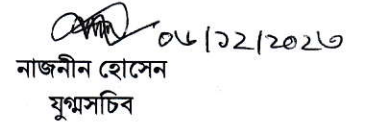 ০৬/১২/২০২৩
নাজনীন হোসেন
যুগ্মসচিব